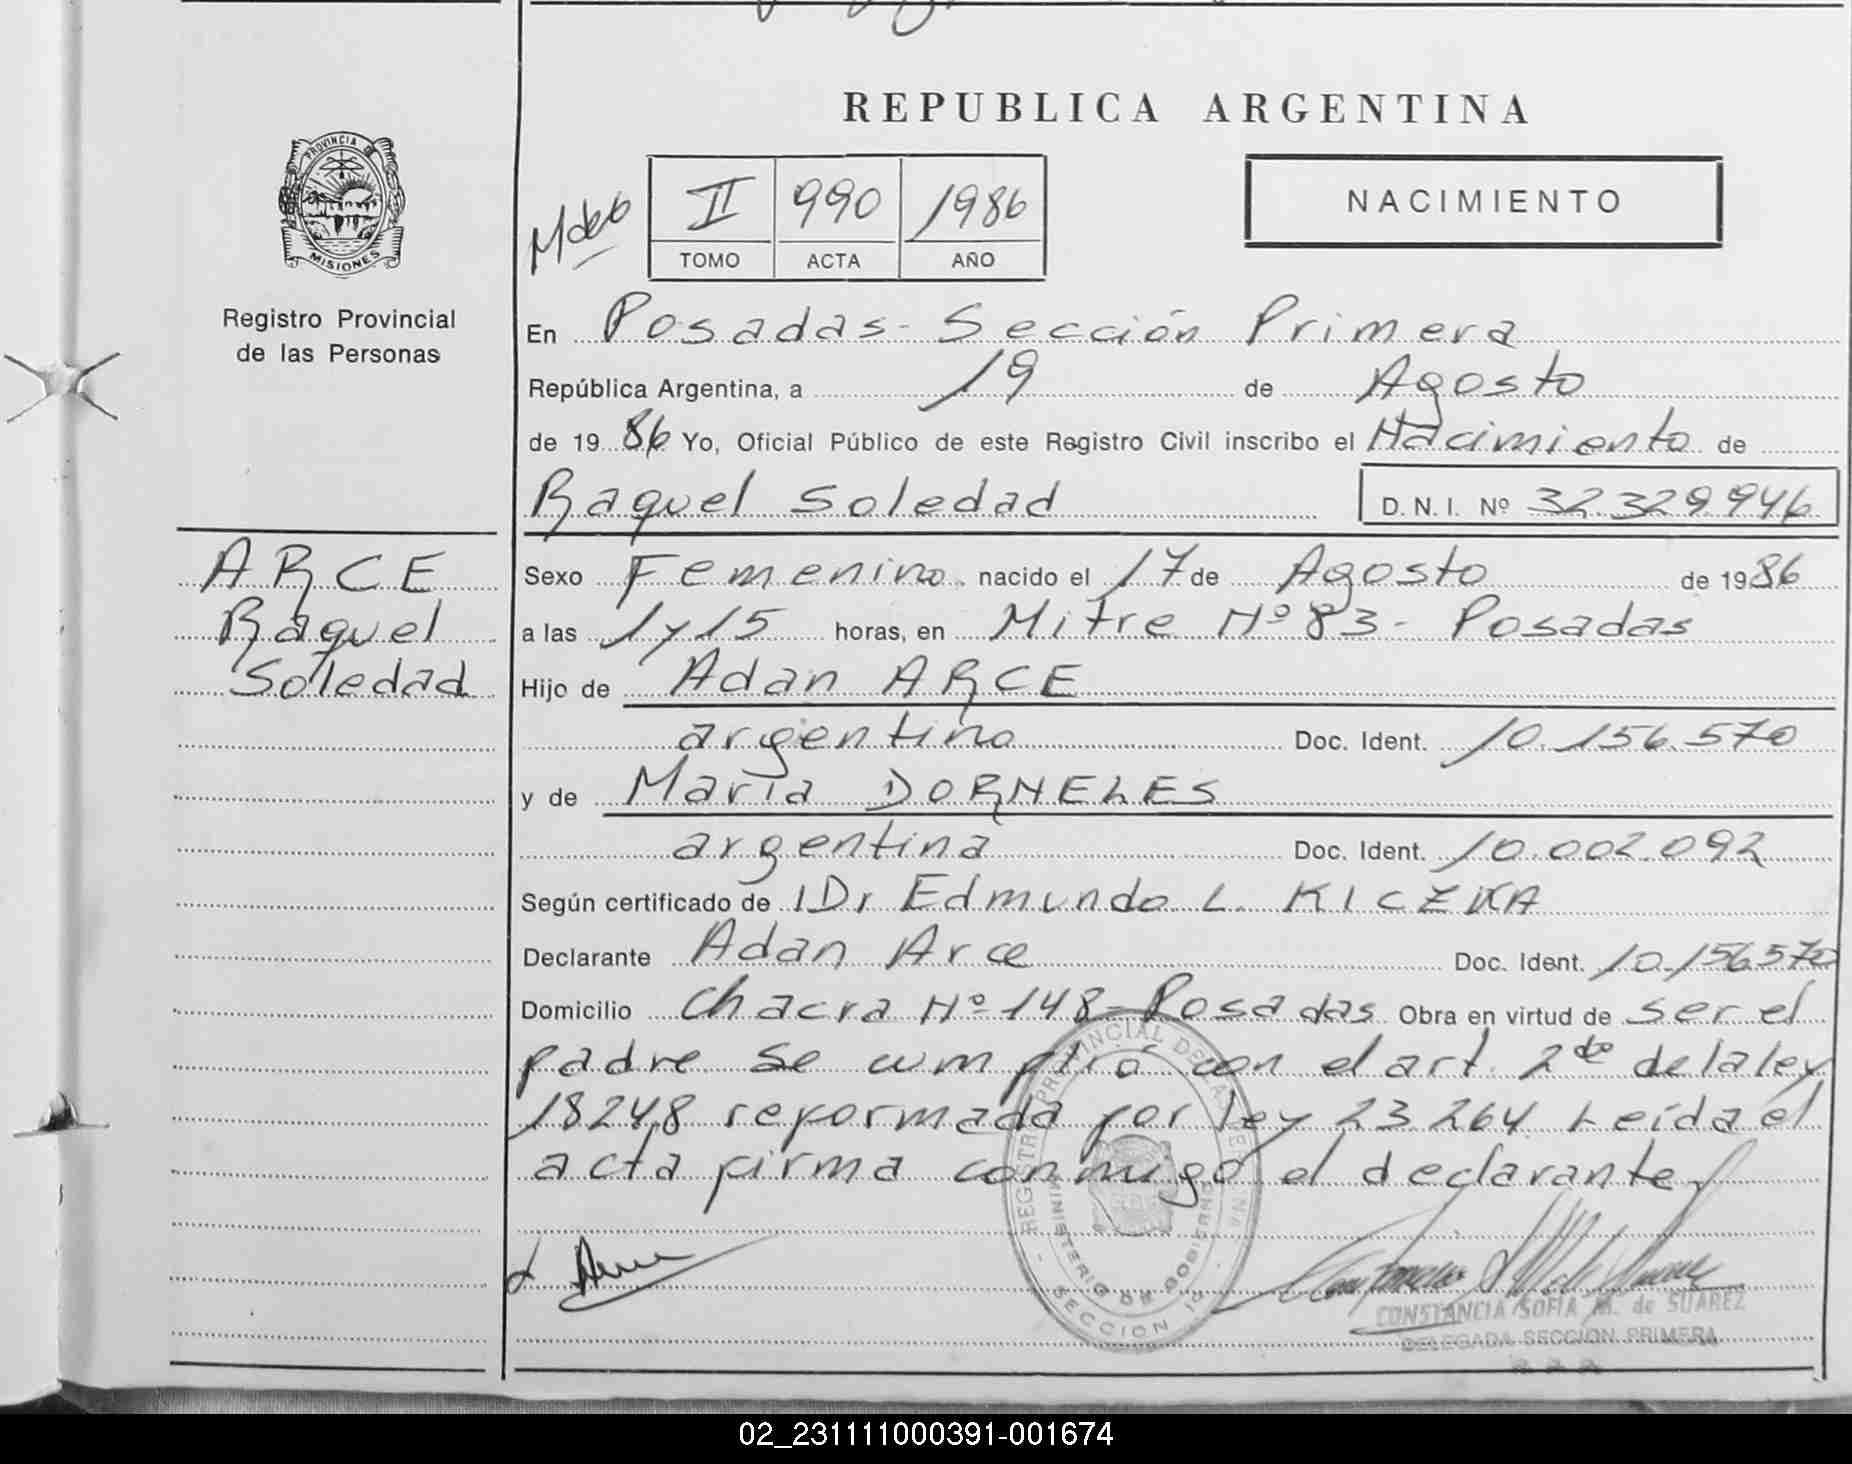 REPUBLICA ARGENTINA
PROVINCIA DE
MISIONES
Registro Provincial
de las Personas
II 990 1986
TOMO ACTA AÑO
NACIMIENTO
En Posadas - Sección Primera
República Argentina, a 19 de Agosto
de 19 86 Yo, Oficial Público de este Registro Civil inscribo el Nacimiento de
Raquel Soledad D. N. I. Nº 32.329.946
ARCE
Raquel
Soledad
Sexo Femenino nacido el 17 de Agosto de 1986
a las 1 y 15 horas, en Mitre Nº 83 - Posadas
Hijo de Adan ARCE
argentino Doc. Ident. 10.156.570
y de María DORNELES
argentina Doc. Ident. 10.002.092
Según certificado de Dr Edmundo L. KICZKA
Declarante Adan Arce Doc. Ident. 10.156.570
Domicilio chacra Nº 148 - Posadas Obra en virtud de ser el
padre se cumplió con el art. 2do de la ley
18248 reformada por ley 23.264 Leída el
acta firma conmigo el declarante
REGISTRO PROVINCIAL DE LAS PERSONAS
MINISTERIO DE GOBIERNO
SECCION
CONSTANCIA SOFIA M. de SUAREZ
DELEGADA SECCION PRIMERA
02_231111000391-001674